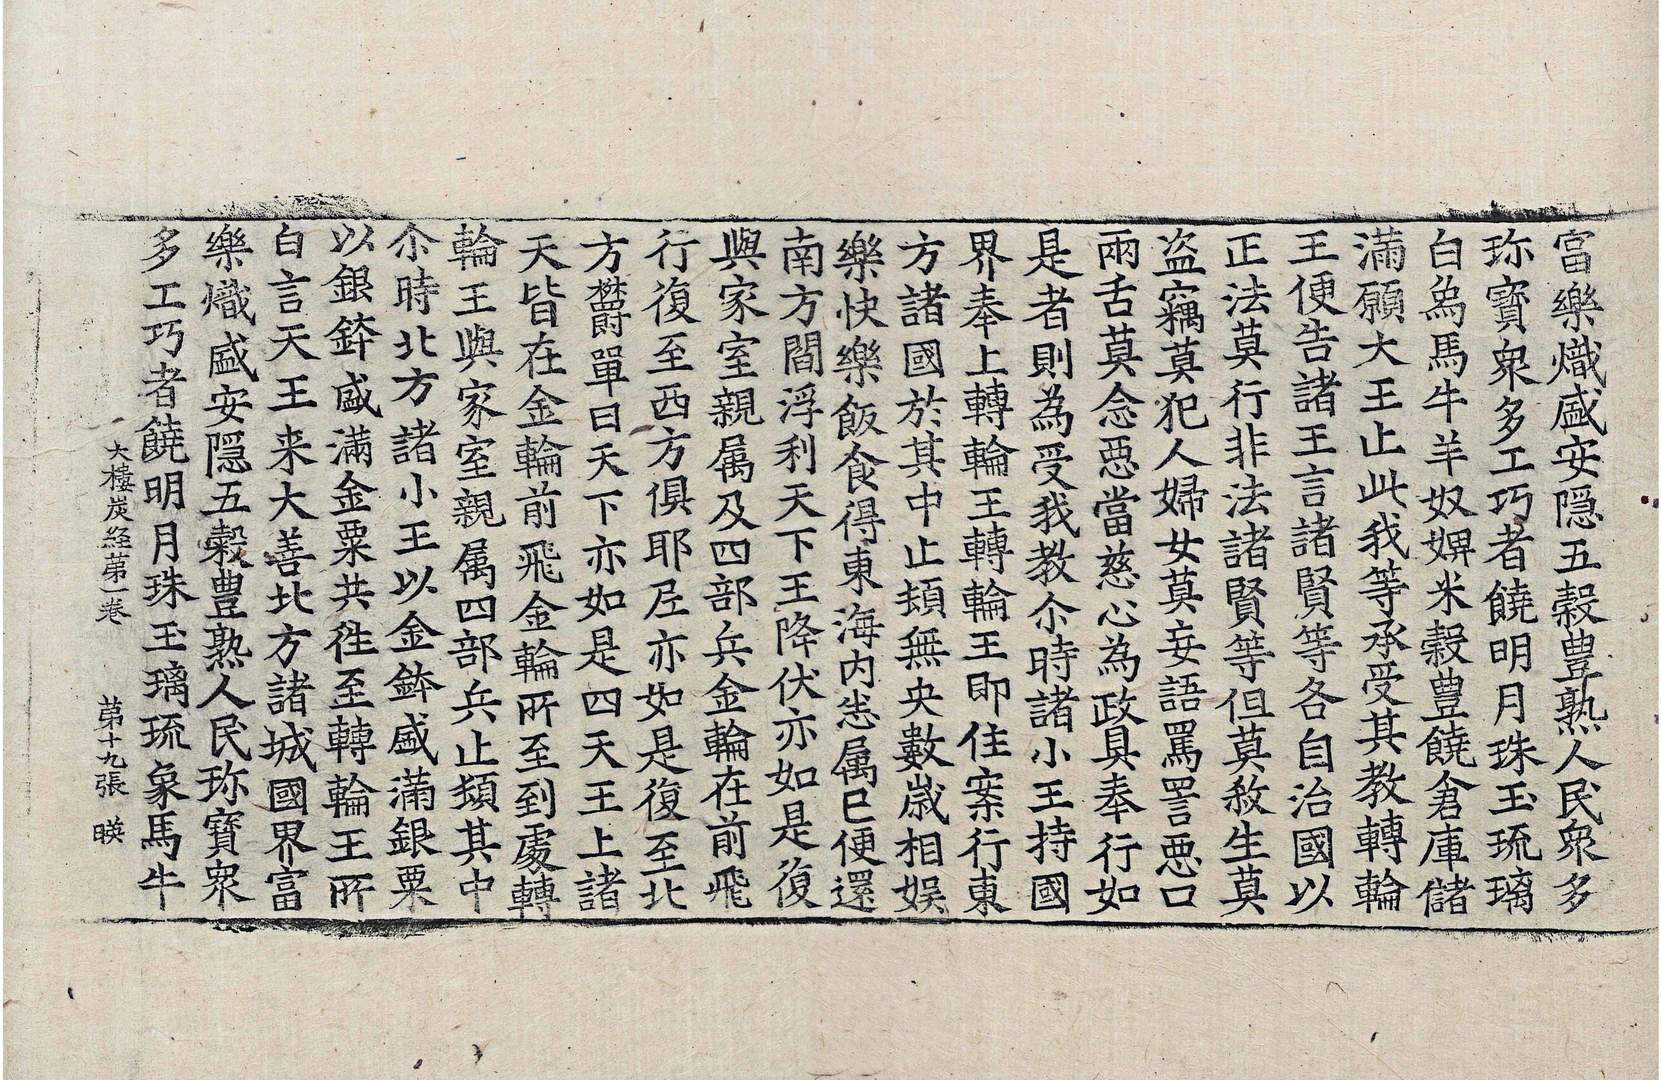 富樂熾盛安隱五穀豊熟人民衆多
珎寳衆多工巧者饒明月珠玉琉璃
白烏馬牛羊奴婢米穀豊饒倉庫儲
滿願大王止此我等承受其教轉輪
王便告諸王言諸賢等各自治國以
正法莫行非法諸賢等但莫敎生莫
盗竊莫犯人婦女莫妄語罵詈惡口
兩舌莫念惡當慈心為政具奉行如
是者則為受我教尒時諸小王持國
界奉上轉輪王轉輪王即住案行東
方諸國於其中止頓無央數歲相娯
樂快樂飯食得東海内悉属已便還
南方閻浮利天下王降伏亦如是復
與家室親属及四部兵金輪在前飛
行復至西方俱耶尼亦如是復至北
方欝單曰天下亦如是四天王上諸
天皆在金輪前飛金輪所至到處轉
輪王與家室親属四部兵止頓其中
尒時北方諸小王以金鉢盛滿銀粟
以銀鉢盛滿金粟共徃至轉輪王所
白言天王来大善北方諸城國界富
樂熾盛安隱五穀豊熟人民珎寳衆
多工巧者饒明月珠玉璃琉象馬牛
大樓炭経苐一卷　苐十九張　暎